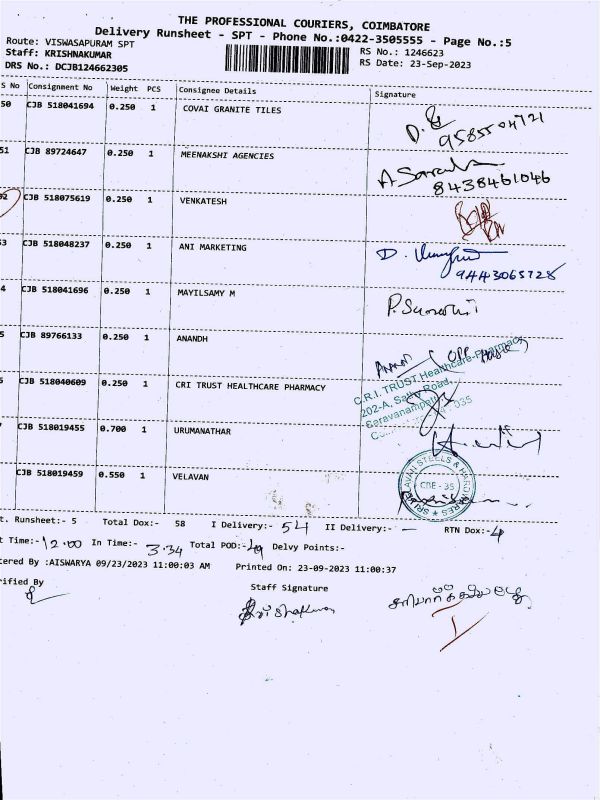 THE PROFESSIONAL COURIERS, COIMBATORE
Delivery Runsheet - SPT - Phone No.:0422-3505555 - Page No.:5
Route: VISWASAPURAM SPT
RS No.: 1246623
Staff: KRISHNAKUMAR
RS Date: 23-Sep-2023
DRS No.: DCJB124662305
S No Consignment No Weight PCS Consignee Details Signature
50 CJB 518041694 0.250 1 COVAI GRANITE TILES
9585504721
51 CJB 89724647 0.250 1 MEENAKSHI AGENCIES
8438461046
52 CJB 518075619 0.250 1 VENKATESH
53 CJB 518048237 0.250 1 ANI MARKETING D.
9443065728
4 CJB 518041696 0.250 1 MAYILSAMY M
5 CJB 89766133 0.250 1 ANANDH
6 CJB 518040609 0.250 1 CRI TRUST HEALTHCARE PHARMACY
C.R.I. TRUST Healthcare-Pharmacy
202-A, Sathy Road,
Saravanampatti
035
7 CJB 518019455 0.700 1 URUMANATHAR
CJB 518019459 0.550 1 VELAVAN
SRI VELAVAN STEELS & HARDWARES
CBE - 35
t. Runsheet:- 5 Total Dox:- 58 I Delivery:- 54 II Delivery:- - RTN Dox:- 4
t Time:- 12.00 In Time:- 3.34 Total POD:- 49 Delvy Points:-
tered By :AISWARYA 09/23/2023 11:00:03 AM Printed On: 23-09-2023 11:00:37
rified By Staff Signature